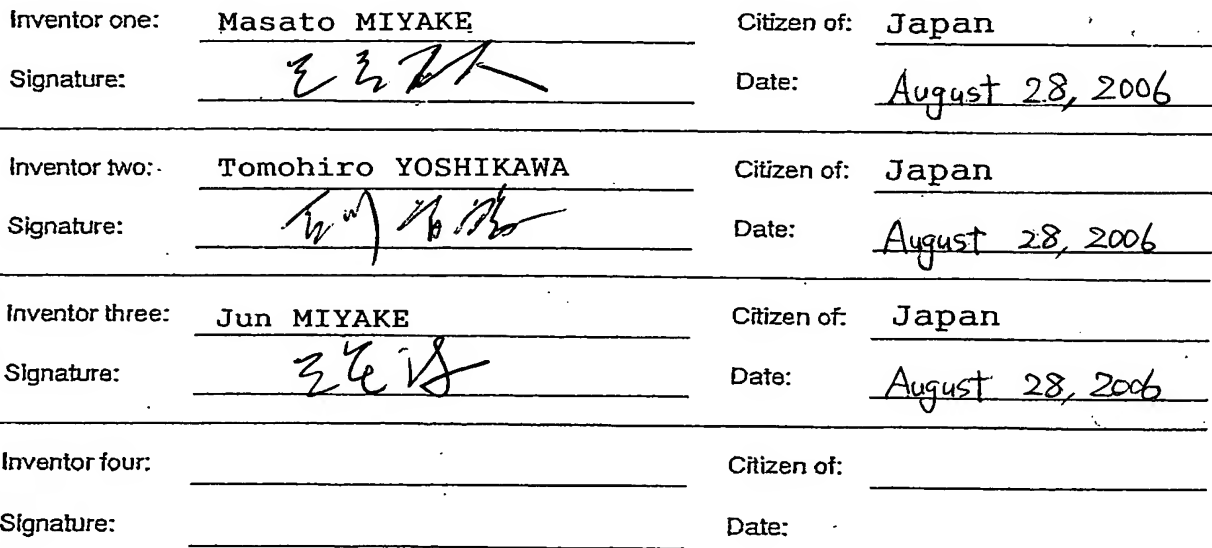 Inventor one: Masato MIYAKE Citizen of: Japan
Signature: Date: August 28, 2006
Inventor two: Tomohiro YOSHIKAWA Citizen of: Japan
Signature: Date: August 28, 2006
Inventor three: Jun MIYAKE Citizen of: Japan
Signature: Date: August 28, 2006
Inventor four: Citizen of:
Signature: Date: